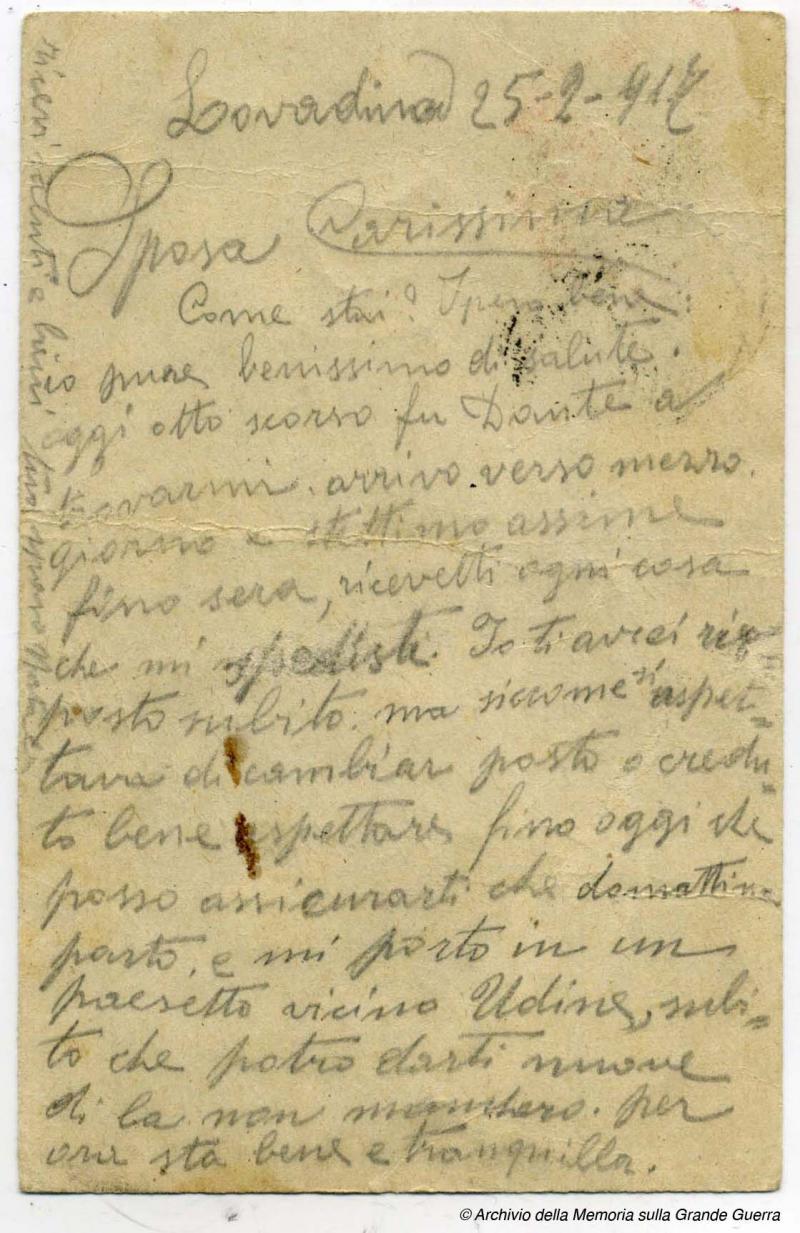 Lovadina 25-2-917
Sposa Carissima
Come stai? Spero bene,
io pure benissimo di salute.
oggi otto scorso fu Dante a
trovarmi. arrivo verso mezzo.
giorno e stettimo assime
fino sera, ricevetti ogni cosa
che mi spedisti. Io ti avrei ris-
posto subito. ma siccome si aspet-
tava di cambiar posto o credu-
to bene aspettare fino oggi che
posso assicurarti che domattina
parto, e mi porto in un
paesetto vicino Udine, subi-
to che potro darti nuove
di la non manchero. per
ora sta bene e tranquilla.
Ricevi saluti e baci tuo sposo
© Archivio della Memoria sulla Grande Guerra